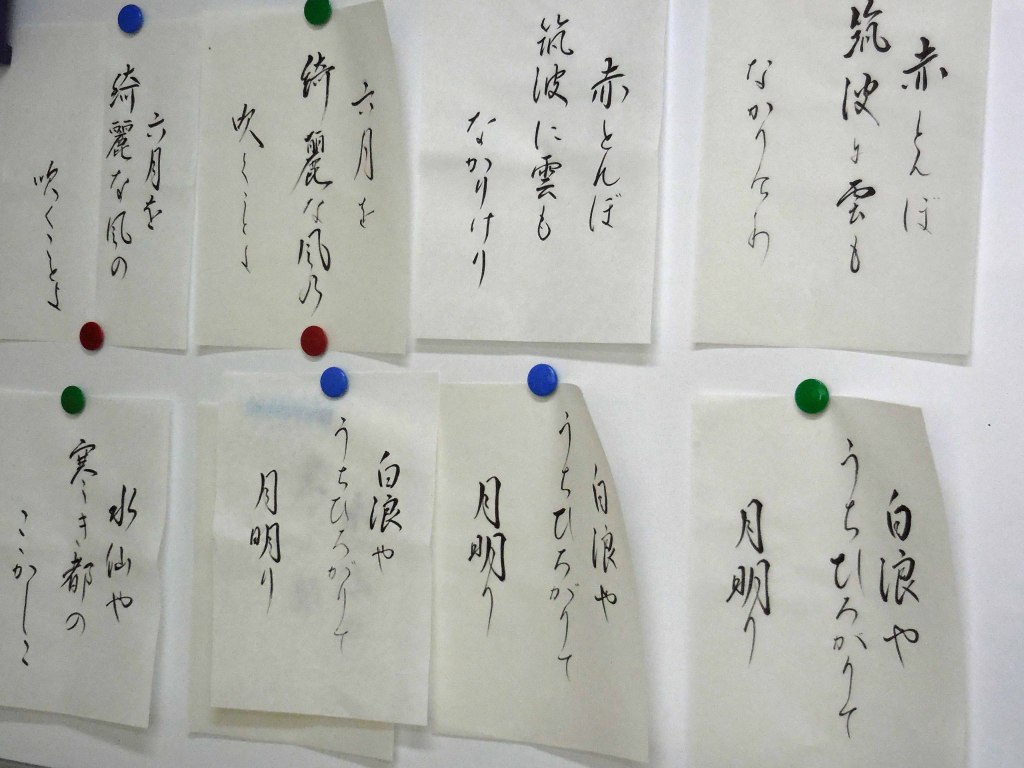 赤とんぼ
筑波に雲も
なかりけり
赤とんぼ
筑波に雲も
なかりけり
六月を
綺麗な風の
吹くことよ
六月を
綺麗な風の
吹くことよ
白浪や
うちひろがりて
月明り
白浪や
うちひろがりて
月明り
白浪や
うちひろがりて
月明り
水仙や
寒き都の
こゝかしこ